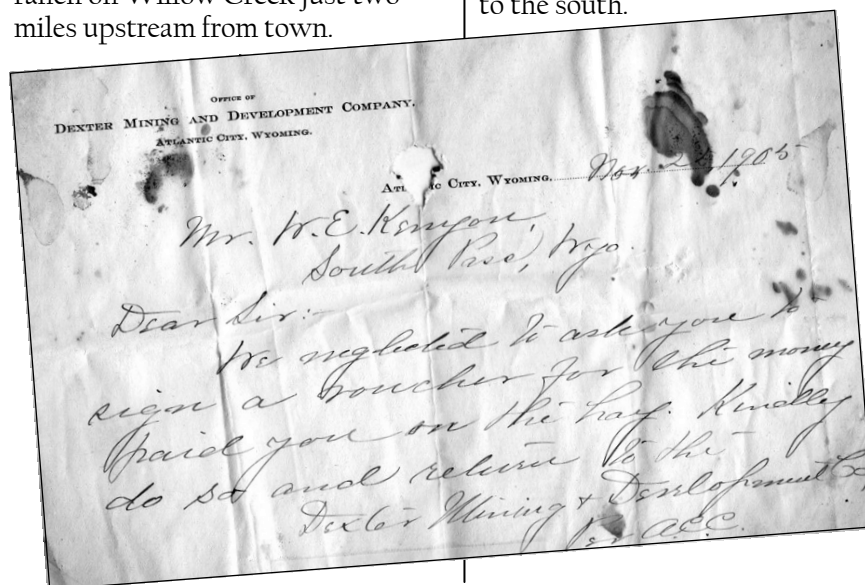 ranch on Willow Creek just two
miles upstream from town.
to the south.
OFFICE OF
DEXTER MINING AND DEVELOPMENT COMPANY.
ATLANTIC CITY, WYOMING.
CITY, WYOMING. Nov. 1905
Mr. W. E. Kenyon,
South Pass, Wyo.
Dear Sir:-
We neglected to ask you to
sign a voucher for the money
paid you on the hay. Kindly
do so and return to the
Dexter Mining & Development Co.
Per A.C.C.